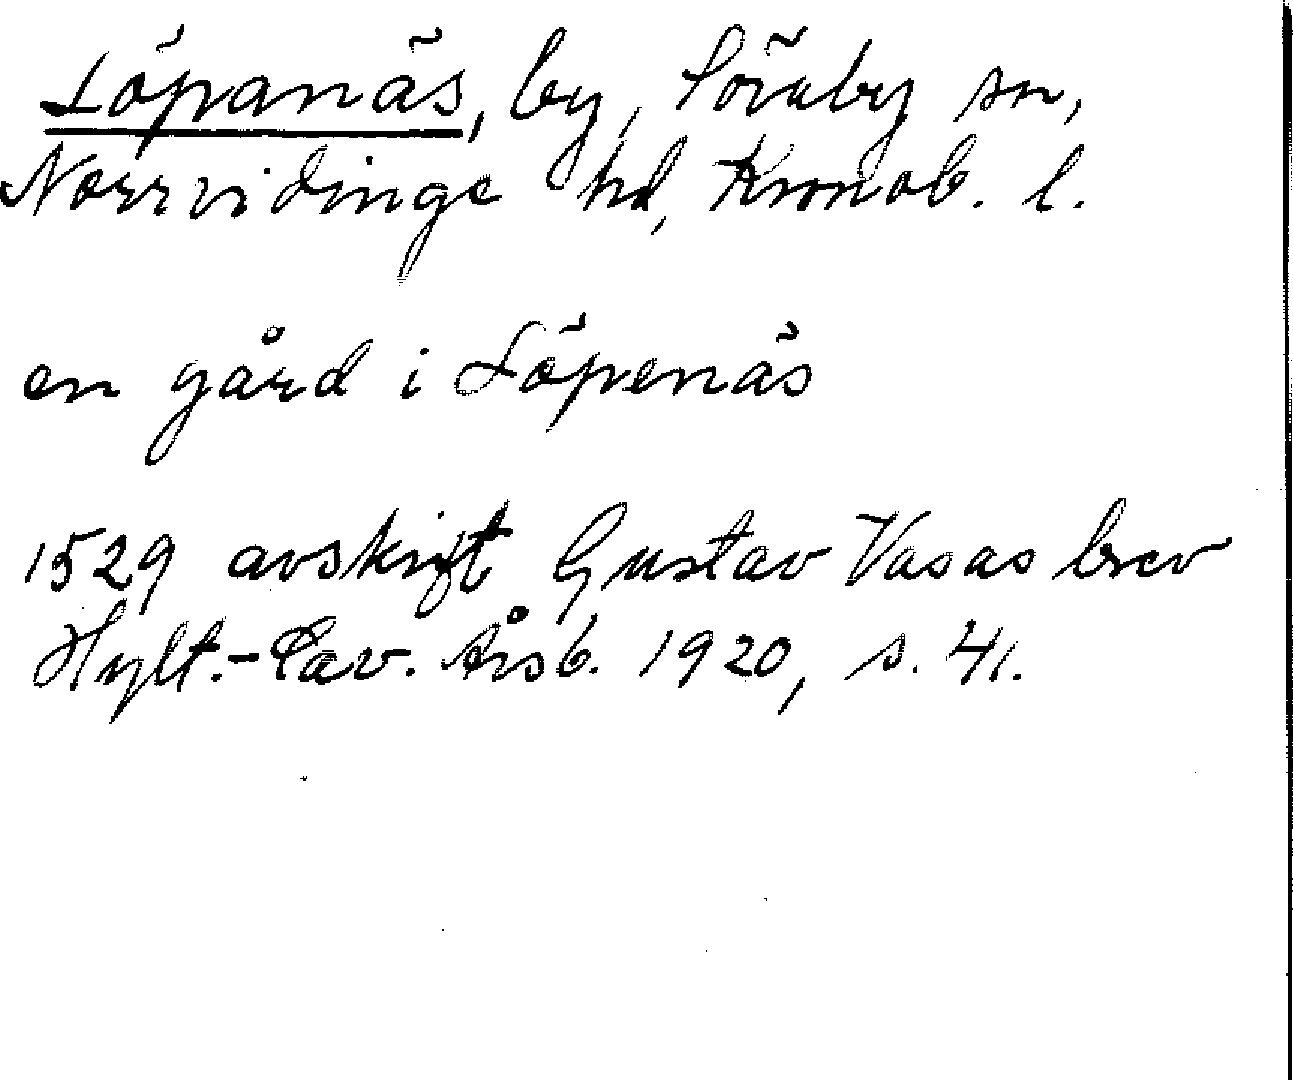 Löpanäs, by, Söraby sn,
Norrvidinge hd, Kronob. l.
en gård i Löpenäs
1529 avskrift Gustav Vasas brev
Hylt.-Cav. Årsb. 1920, s. 41.